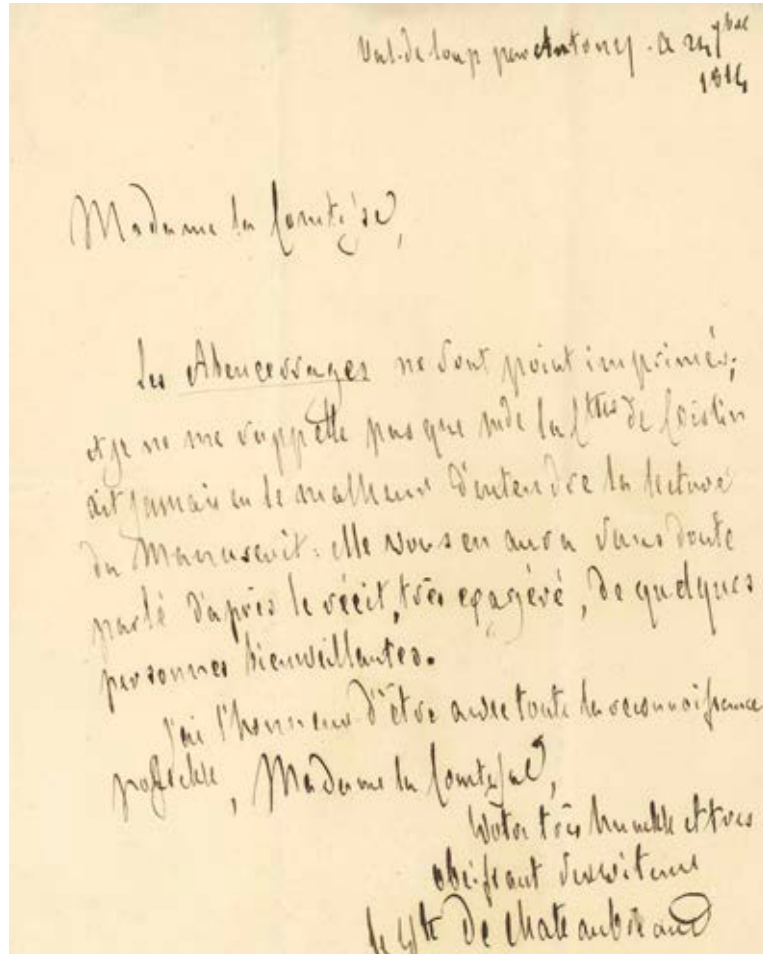 Val-de-loup par Antony. ce 24 7bre
1814
Madame la Comtesse,
Les Abencerrages ne sont point imprimés;
et je ne me rappelle pas que mde la Ctesse de Coislin
ait jamais eu le malheur d'entendre la lecture
du Manuscrit: elle vous en aura sans doute
parlé d'après le récit, très exagéré, de quelques
personnes bienveillantes.
J'ai l'honneur d'être avec toute la reconnoissance
possible, Madame la Comtesse,
Votre très humble et très
obéissant serviteur
le Vte de Chateaubriand